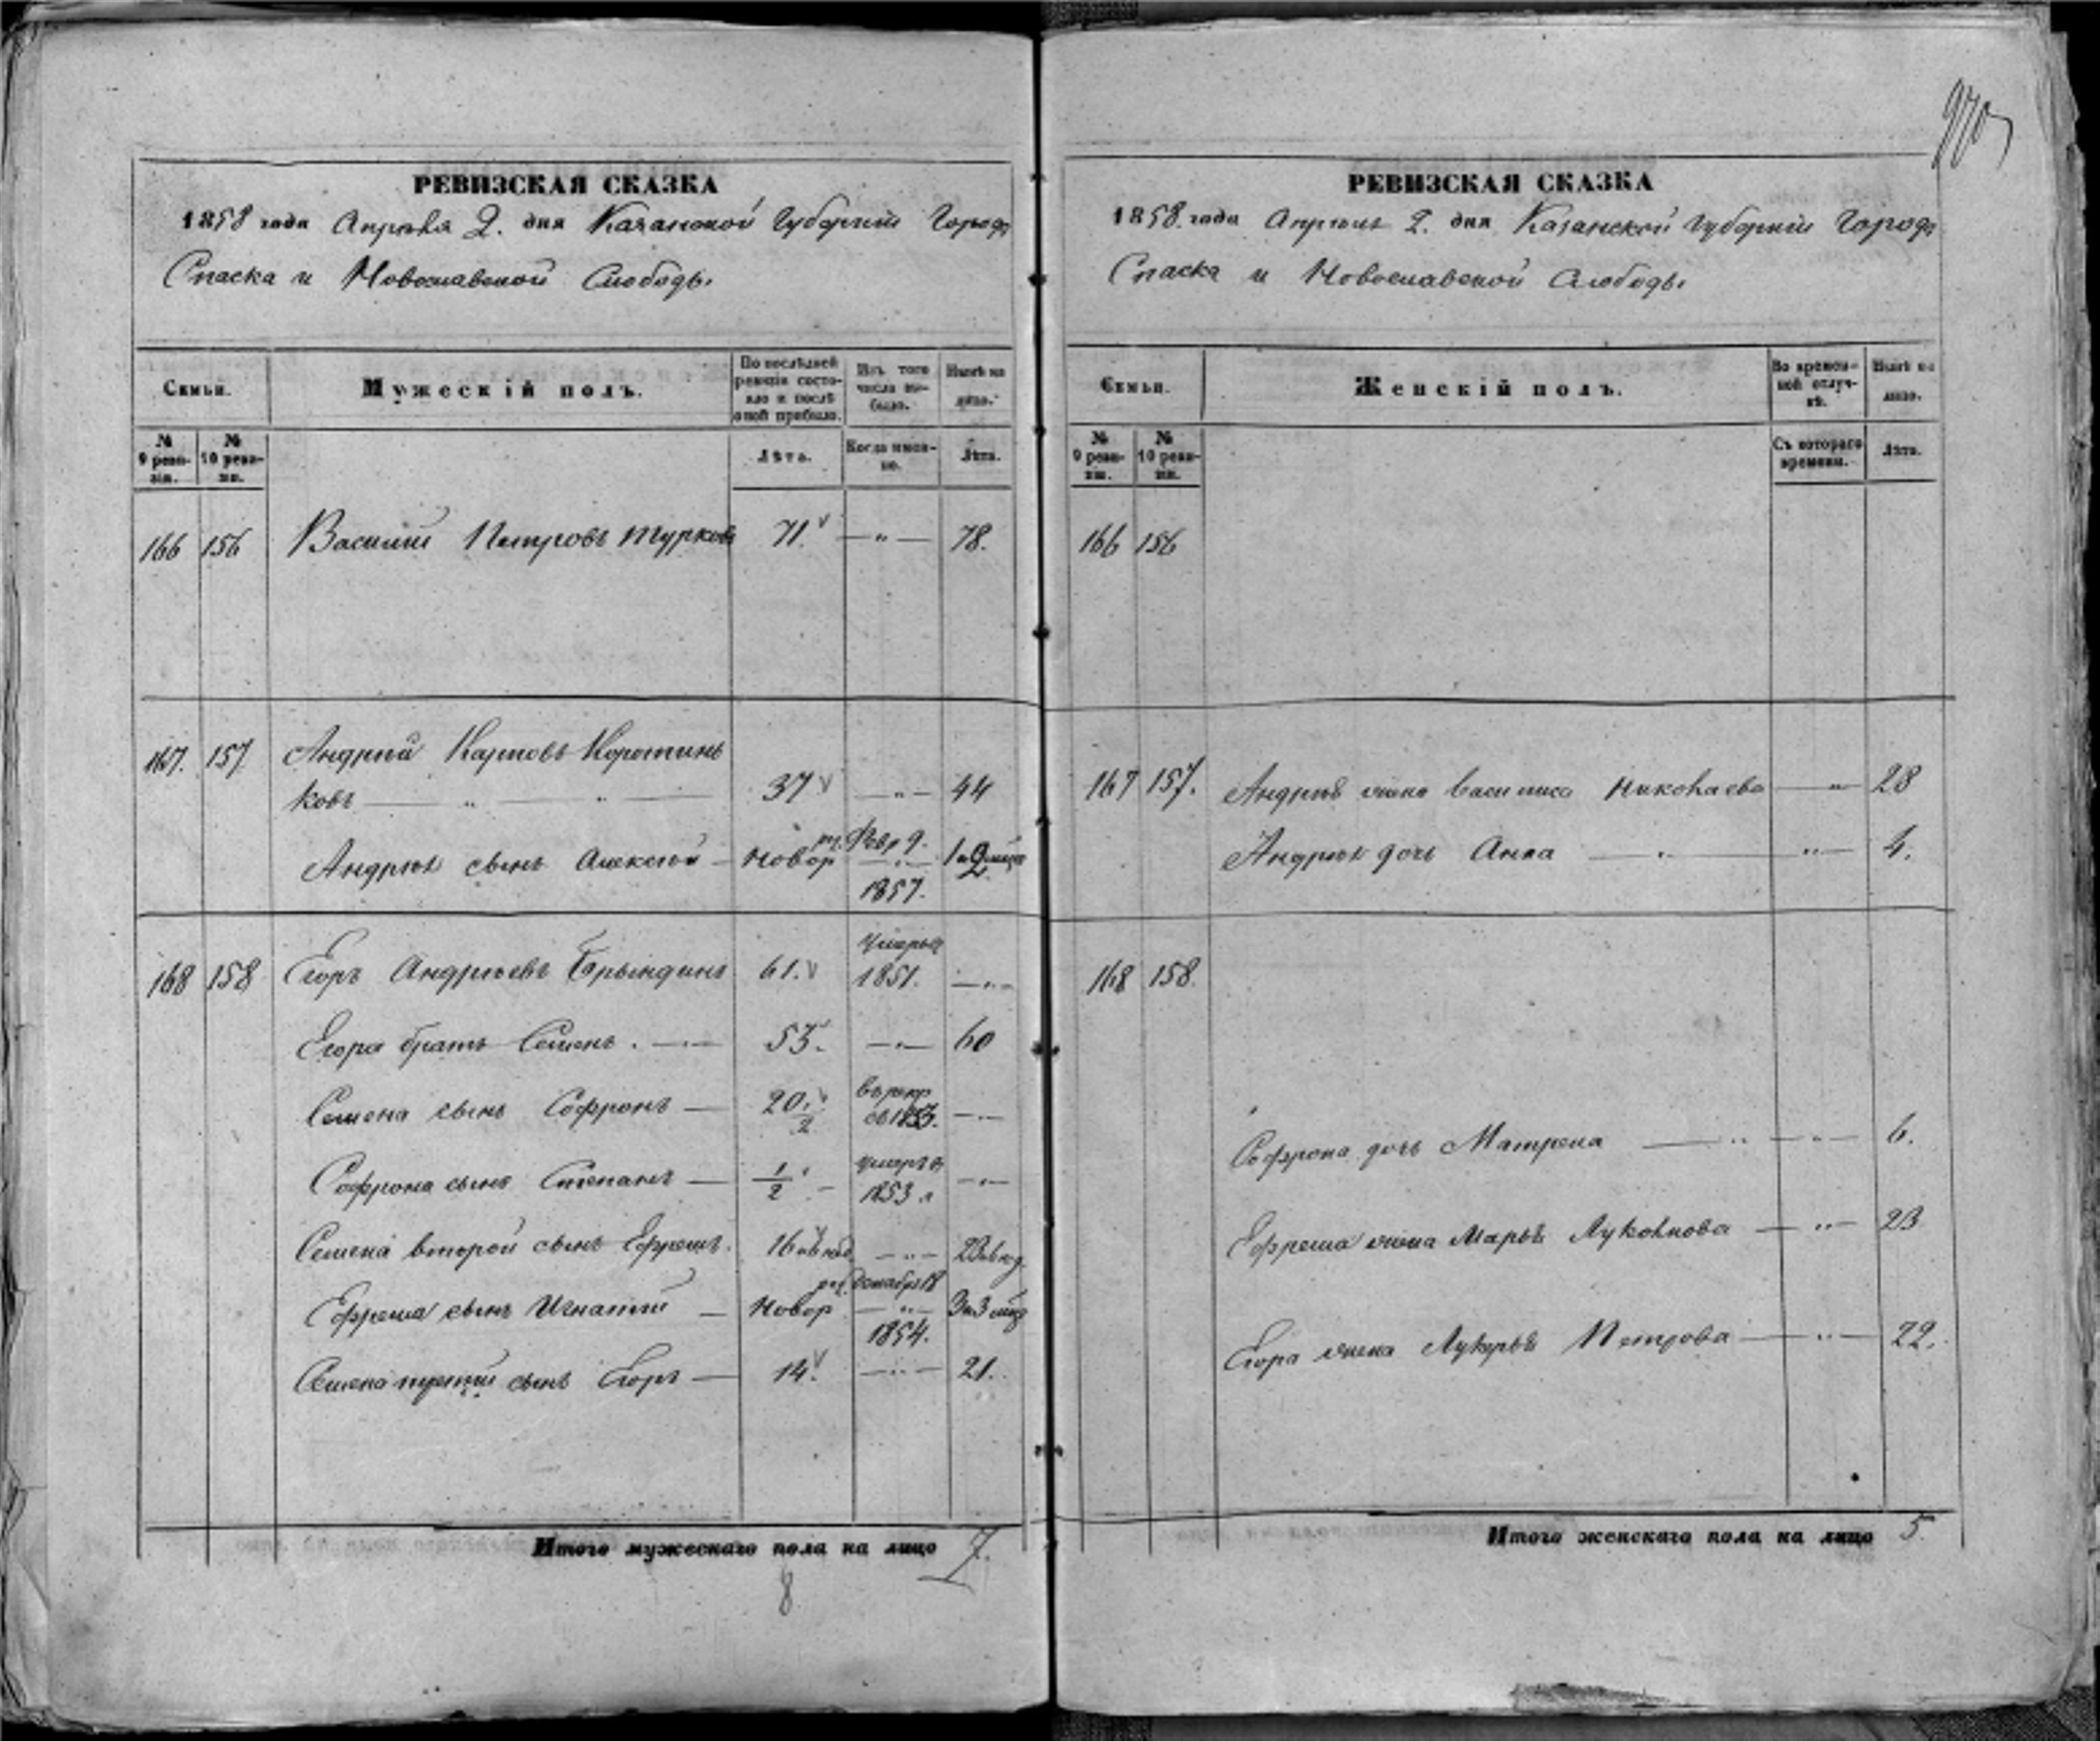 970
РЕВИЗСКАЯ СКАЗКА
1858 года Апрѣля 2. дня Казанской Губернiи Города
Спаска и Новоспавской Слободы.
Семьи.
Мужескiй полъ.
По послѣдней ревизiи состояло и послѣ оной прибыло.
Изъ того числа выбыло.
Нынѣ на лицо.
№ 9 ревизiи.
№ 10 ревизiи.
Лѣта.
Когда именно.
Лѣта.
166 156 Василiй Петровъ Турковъ 71. — " — 78.
167. 157 Андрей Карповъ Коротинь
ковъ — " — " — 37 — " — 44
Андрея сынъ Алексѣй — Новор Февр 9. 1857.
168 158 Егоръ Андреевъ Брындинъ 61. умеръ 1851. — " —
Егора братъ Семенъ. — " — 53. — " — 60
Семена сынъ Софронъ — 20 1/2 — " —
Софрона сынъ Степанъ — 1/2 — умеръ въ 1853 — " —
Семена второй сынъ Ефремъ. 16 — " — 23
Ефрема сынъ Игнатiй — Новор род. декабря 18 1854. 3 и 3 мѣс
Семена третiй сынъ Егоръ — 14. — " — 21.
Итого мужескаго пола на лицо 7.
8
РЕВИЗСКАЯ СКАЗКА
1858. года Апрѣля 2. дня Казанской Губернiи Города
Спаска и Новоспавской Слободы
Семьи.
Женскiй полъ.
Во временной отлучкѣ.
Нынѣ на лицо.
№ 9 ревизiи.
№ 10 ревизiи.
Съ котораго времени.
Лѣта.
166 156
167 157. Андрея жена Василиса Николаева — " — 28
Андрея дочь Анна — " — " — 4.
168 158.
Софрона дочь Матрена — " — " — 6.
Ефрема жена Марья Лукоянова — " — 23
Егора жена Лукерья Петрова — " — 22.
Итого женскаго пола на лицо 5